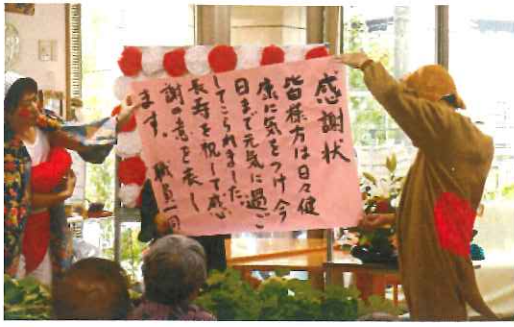 感謝状
皆様方は日々健
康に気をつけ今
日まで元気に過ご
してこられました。
長寿を祝して感
謝の意を表し
ます。 職員一同